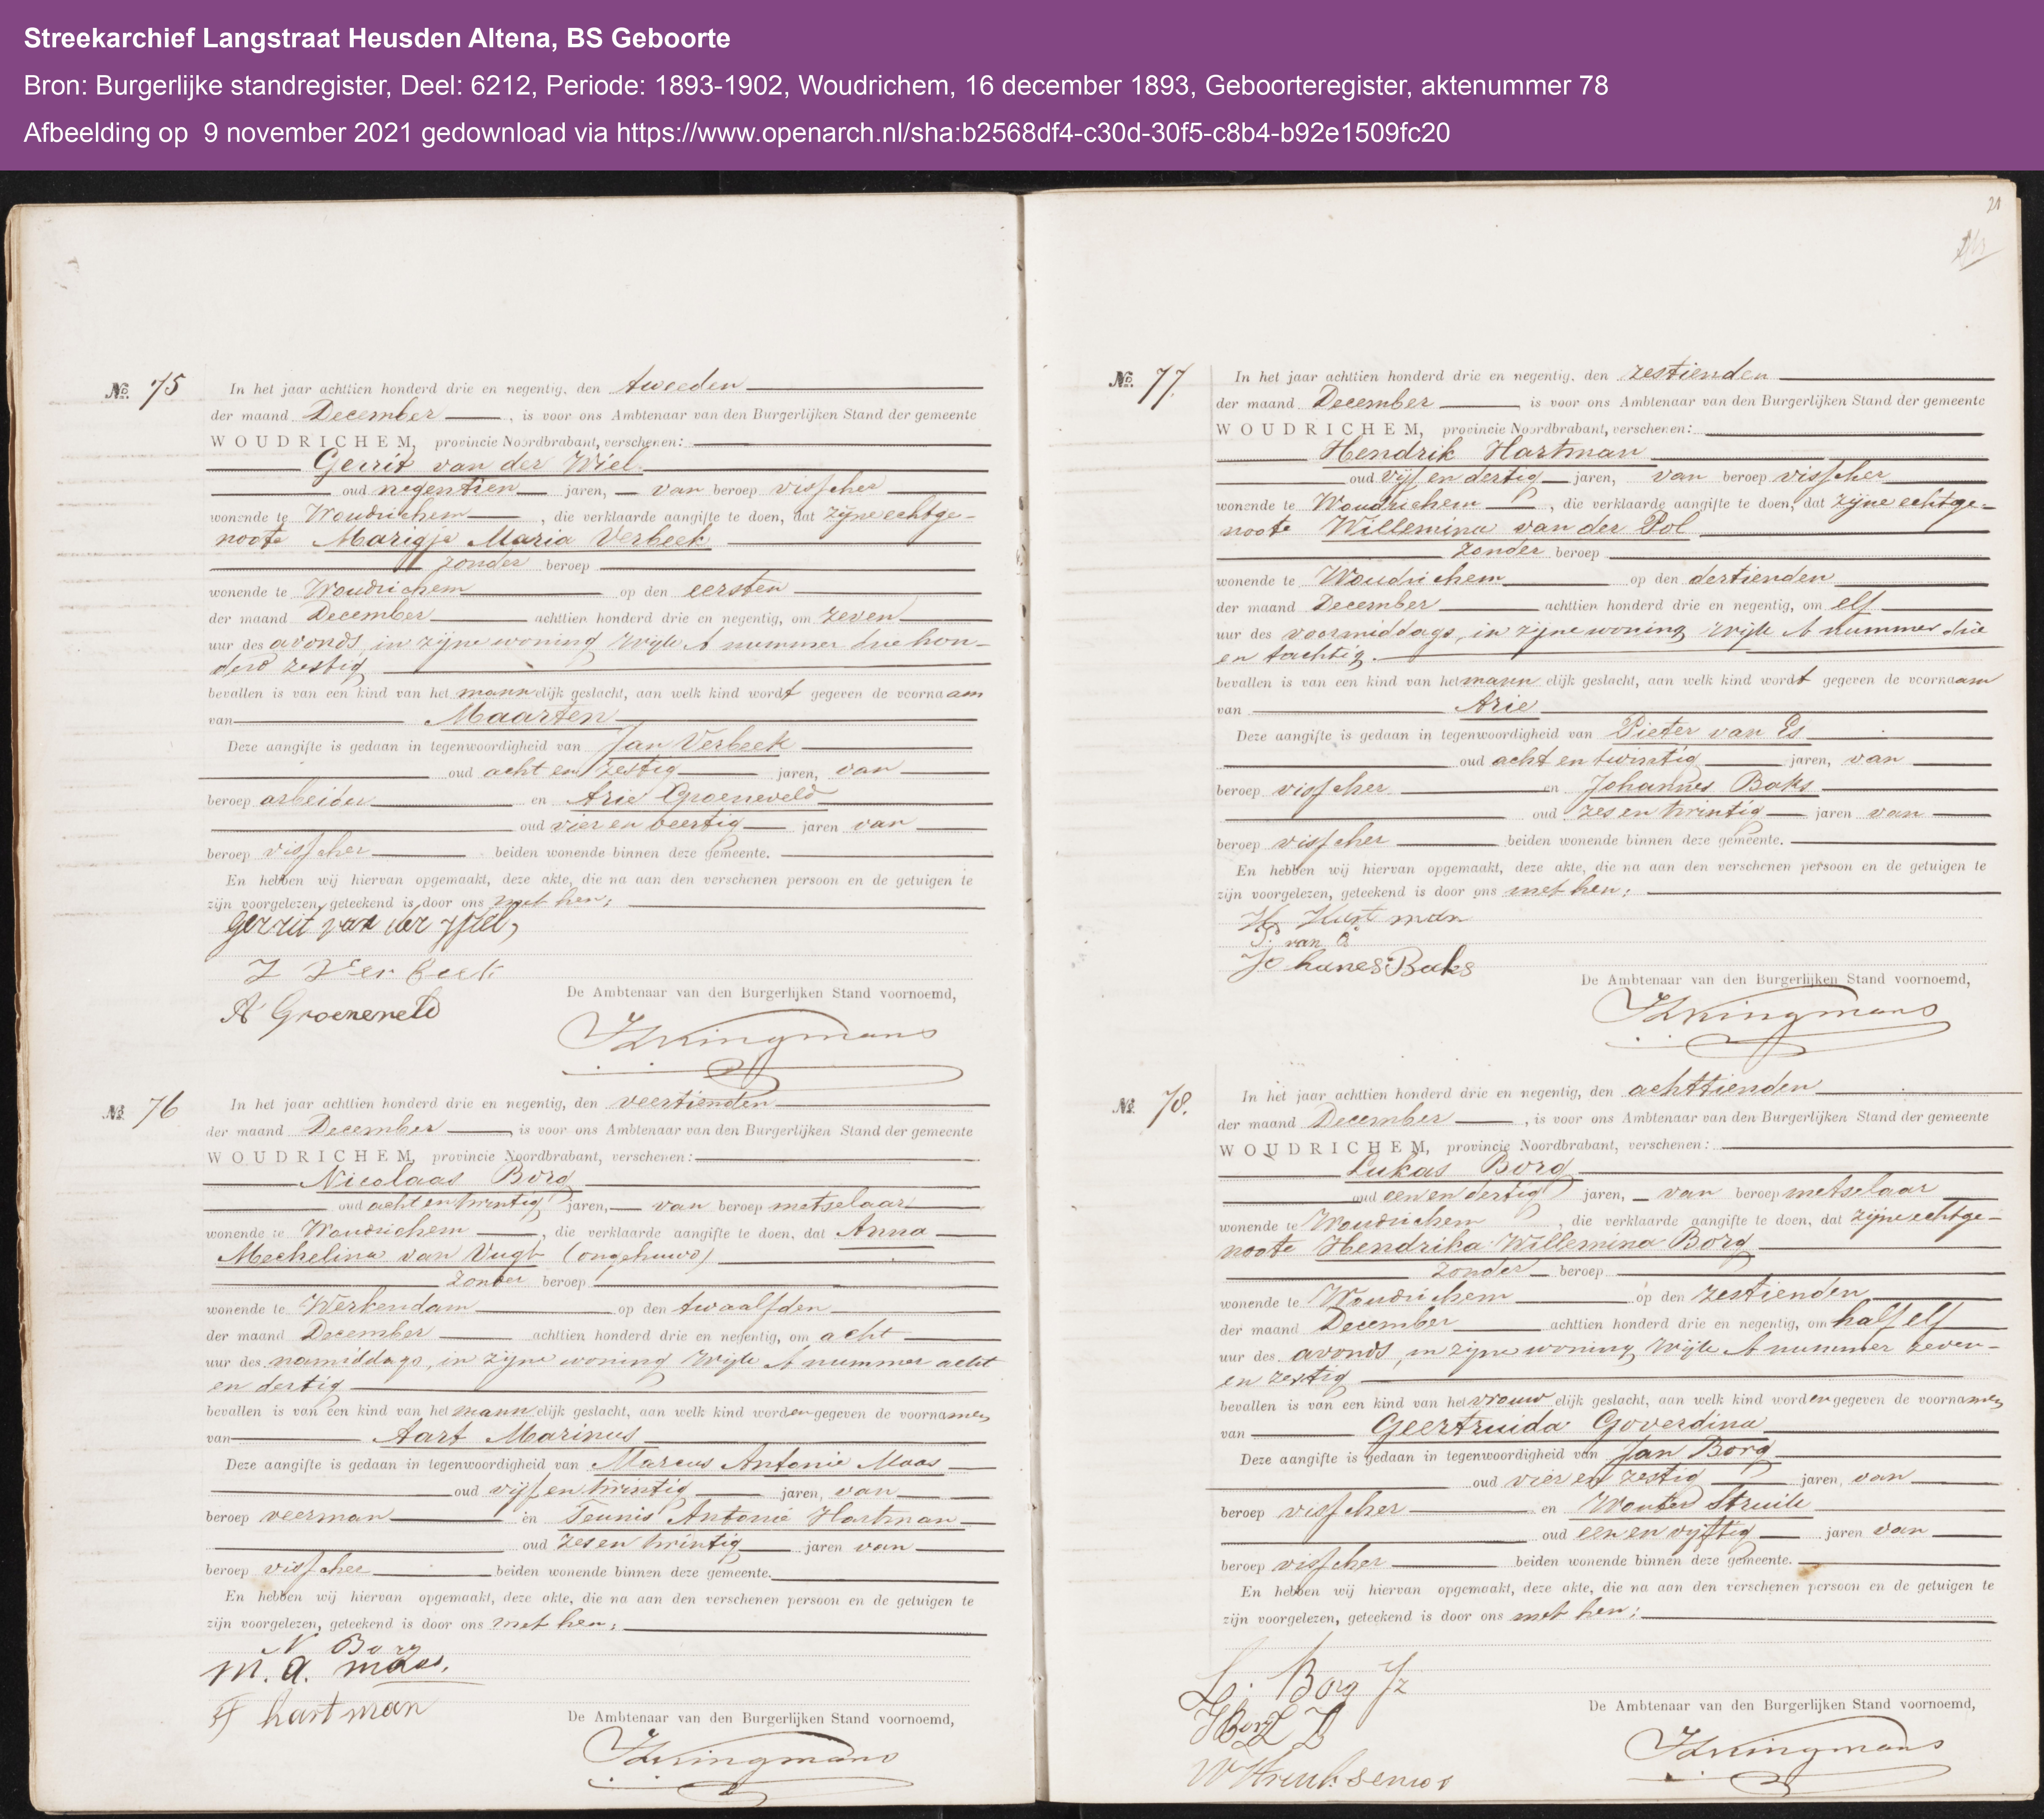 Streekarchief Langstraat Heusden Altena, BS Geboorte
Bron: Burgerlijke standregister, Deel: 6212, Periode: 1893-1902, Woudrichem, 16 december 1893, Geboorteregister, aktenummer 78
Afbeelding op 9 november 2021 gedownload via https://www.openarch.nl/sha:b2568df4-c30d-30f5-c8b4-b92e1509fc20
No. 75 In het jaar achttien honderd drie en negentig, den tweeden
der maand December, is voor ons Ambtenaar van den Burgerlijken Stand der gemeente
WOUDRICHEM, provincie Noordbrabant, verschenen:
Gerrit van der Wiel
oud negentien jaren, van beroep visscher
wonende te Woudrichem, die verklaarde aangifte te doen, dat zijne echtge-
noote Marigje Maria Verbeek
zonder beroep
wonende te Woudrichem op den eersten
der maand December achttien honderd drie en negentig, om zeven
uur des avonds, in zijne woning Wijk A nummer drie hon-
derd zestig
bevallen is van een kind van het mannelijk geslacht, aan welk kind wordt gegeven de voornaam
van Maarten
Deze aangifte is gedaan in tegenwoordigheid van Jan Verbeek
oud acht en zestig jaren, van
beroep arbeider en Arie Groeneveld
oud vier en veertig jaren van
beroep visscher beiden wonende binnen deze gemeente.
En hebben wij hiervan opgemaakt, deze akte, die na aan den verschenen persoon en de getuigen te
zijn voorgelezen, geteekend is door ons met hen;
Gerrit van der Wiel,
J Verbeek
A Groeneveld
De Ambtenaar van den Burgerlijken Stand voornoemd,
Kingmans
No. 76 In het jaar achttien honderd drie en negentig, den veertienden
der maand December, is voor ons Ambtenaar van den Burgerlijken Stand der gemeente
WOUDRICHEM, provincie Noordbrabant, verschenen:
Nicolaas Borg
oud acht en twintig jaren, van beroep metselaar
wonende te Woudrichem, die verklaarde aangifte te doen, dat Anna
Mechelina van Vugt (ongehuwd)
zonder beroep
wonende te Werkendam op den twaalfden
der maand December achttien honderd drie en negentig, om acht
uur des namiddags, in zijne woning Wijk A nummer acht
en dertig
bevallen is van een kind van het mannelijk geslacht, aan welk kind worden gegeven de voornamen
van Aart Marinus
Deze aangifte is gedaan in tegenwoordigheid van Marcus Antonie Maas
oud vijf en twintig jaren, van
beroep veerman en Teunis Antonie Hartman
oud zes en twintig jaren van
beroep visscher beiden wonende binnen deze gemeente.
En hebben wij hiervan opgemaakt, deze akte, die na aan den verschenen persoon en de getuigen te
zijn voorgelezen, geteekend is door ons met hen;
N Borg
M. A. Maas.
hartman
De Ambtenaar van den Burgerlijken Stand voornoemd,
Kingmans
21
No. 77. In het jaar achttien honderd drie en negentig, den zestienden
der maand December is voor ons Ambtenaar van den Burgerlijken Stand der gemeente
WOUDRICHEM, provincie Noordbrabant, verschenen:
Hendrik Hartman
oud vijf en dertig jaren, van beroep visscher
wonende te Woudrichem, die verklaarde aangifte te doen, dat zijne echtge-
noote Willemina van der Pol
zonder beroep
wonende te Woudrichem op den dertienden
der maand December achttien honderd drie en negentig, om elf
uur des voormiddags, in zijne woning Wijk A nummer drie
en tachtig.
bevallen is van een kind van het mannelijk geslacht, aan welk kind wordt gegeven de voornaam
van Arie
Deze aangifte is gedaan in tegenwoordigheid van Pieter van Es
oud acht en twintig jaren, van
beroep visscher en Johannes Baks
oud zes en twintig jaren van
beroep visscher beiden wonende binnen deze gemeente.
En hebben wij hiervan opgemaakt, deze akte, die na aan den verschenen persoon en de getuigen te
zijn voorgelezen, geteekend is door ons met hen;
H Hartman
P. van
Johanes Baks
De Ambtenaar van den Burgerlijken Stand voornoemd,
Kingmans
No. 78. In het jaar achttien honderd drie en negentig, den achttienden
der maand December, is voor ons Ambtenaar van den Burgerlijken Stand der gemeente
WOUDRICHEM, provincie Noordbrabant, verschenen:
Lukas Borg
oud een en dertig jaren, van beroep metselaar
wonende te Woudrichem, die verklaarde aangifte te doen, dat zijne echtge-
noote Hendrika Willemina Borg
zonder beroep
wonende te Woudrichem op den zestienden
der maand December achttien honderd drie en negentig, om half elf
uur des avonds, in zijne woning Wijk A nummer zeven-
en zestig
bevallen is van een kind van het vrouwelijk geslacht, aan welk kind worden gegeven de voornamen
van Geertruida Goverdina
Deze aangifte is gedaan in tegenwoordigheid van Jan Borg
oud vier en zestig jaren, van
beroep visscher en Wouter Struik
oud een en vijftig jaren van
beroep visscher beiden wonende binnen deze gemeente.
En hebben wij hiervan opgemaakt, deze akte, die na aan den verschenen persoon en de getuigen te
zijn voorgelezen, geteekend is door ons met hen;
L. Borg Jz
W Struik senior
De Ambtenaar van den Burgerlijken Stand voornoemd,
Kingmans